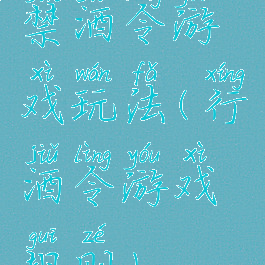 禁酒令游
xì wán fǎ xíng
戏玩法(行
jiǔ lìng yóu xì
酒令游戏
guī zé
规则)